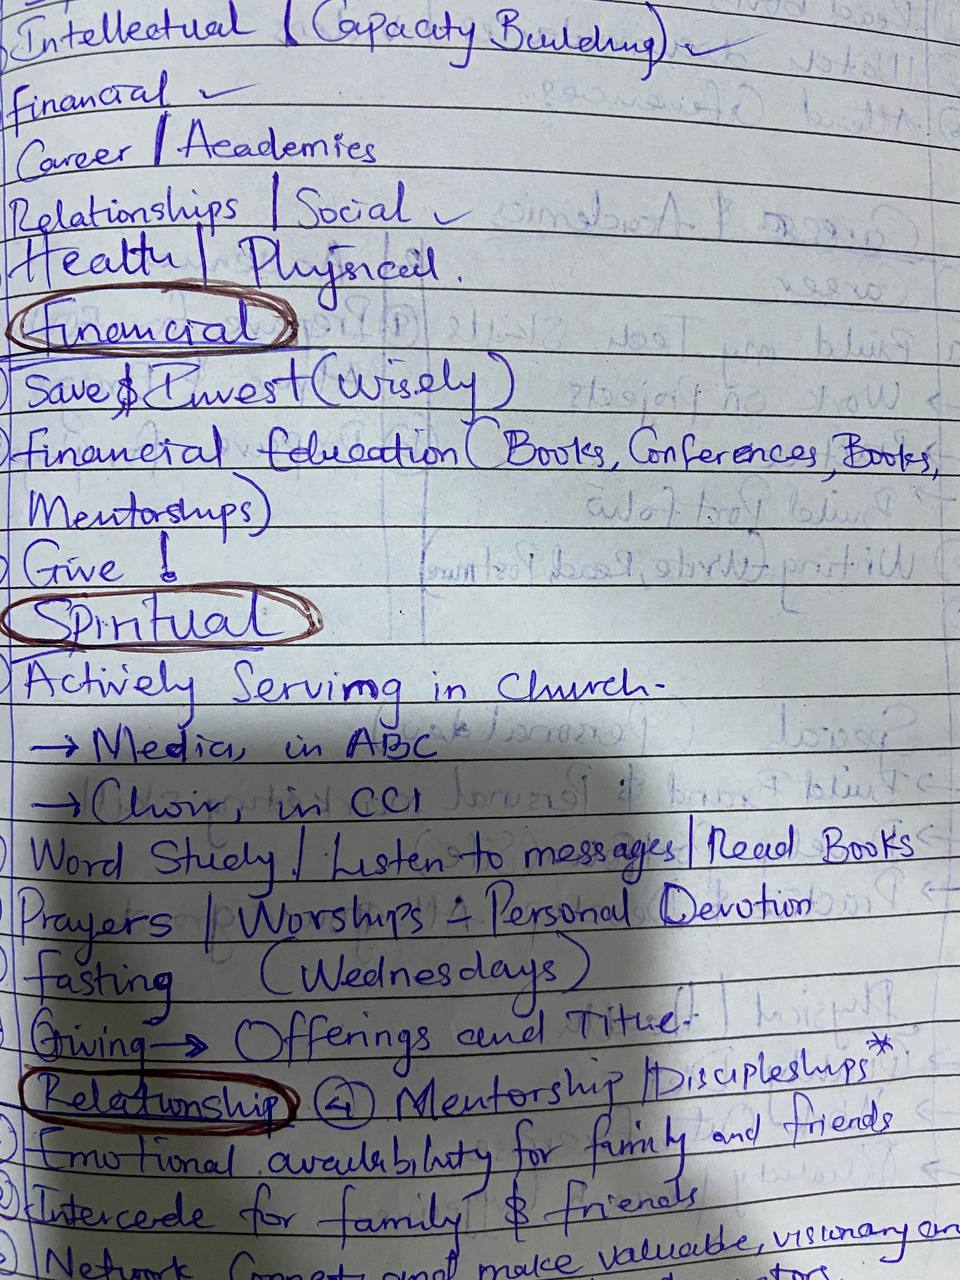 Intellectual | (Capacity Building)
Financial
Career | Academics
Relationships | Social
Health | Physical.
Financial
Save $ Invest (Wisely)
Financial Education (Books, Conferences, Books,
Mentorships)
Give !
Spiritual
Actively Serving in Church-
→ Media, in ABC
→ Choir, in CCI
Word Study / Listen to messages | Read Books
Prayers | Worships - Personal Devotion
Fasting (Wednesdays)
Giving → Offerings and Tithe.
Relationship ④ Mentorship | Discipleships*
Emotional availability for family and friends
Intercede for family $ friends
Network Connect and make valuable, visionary